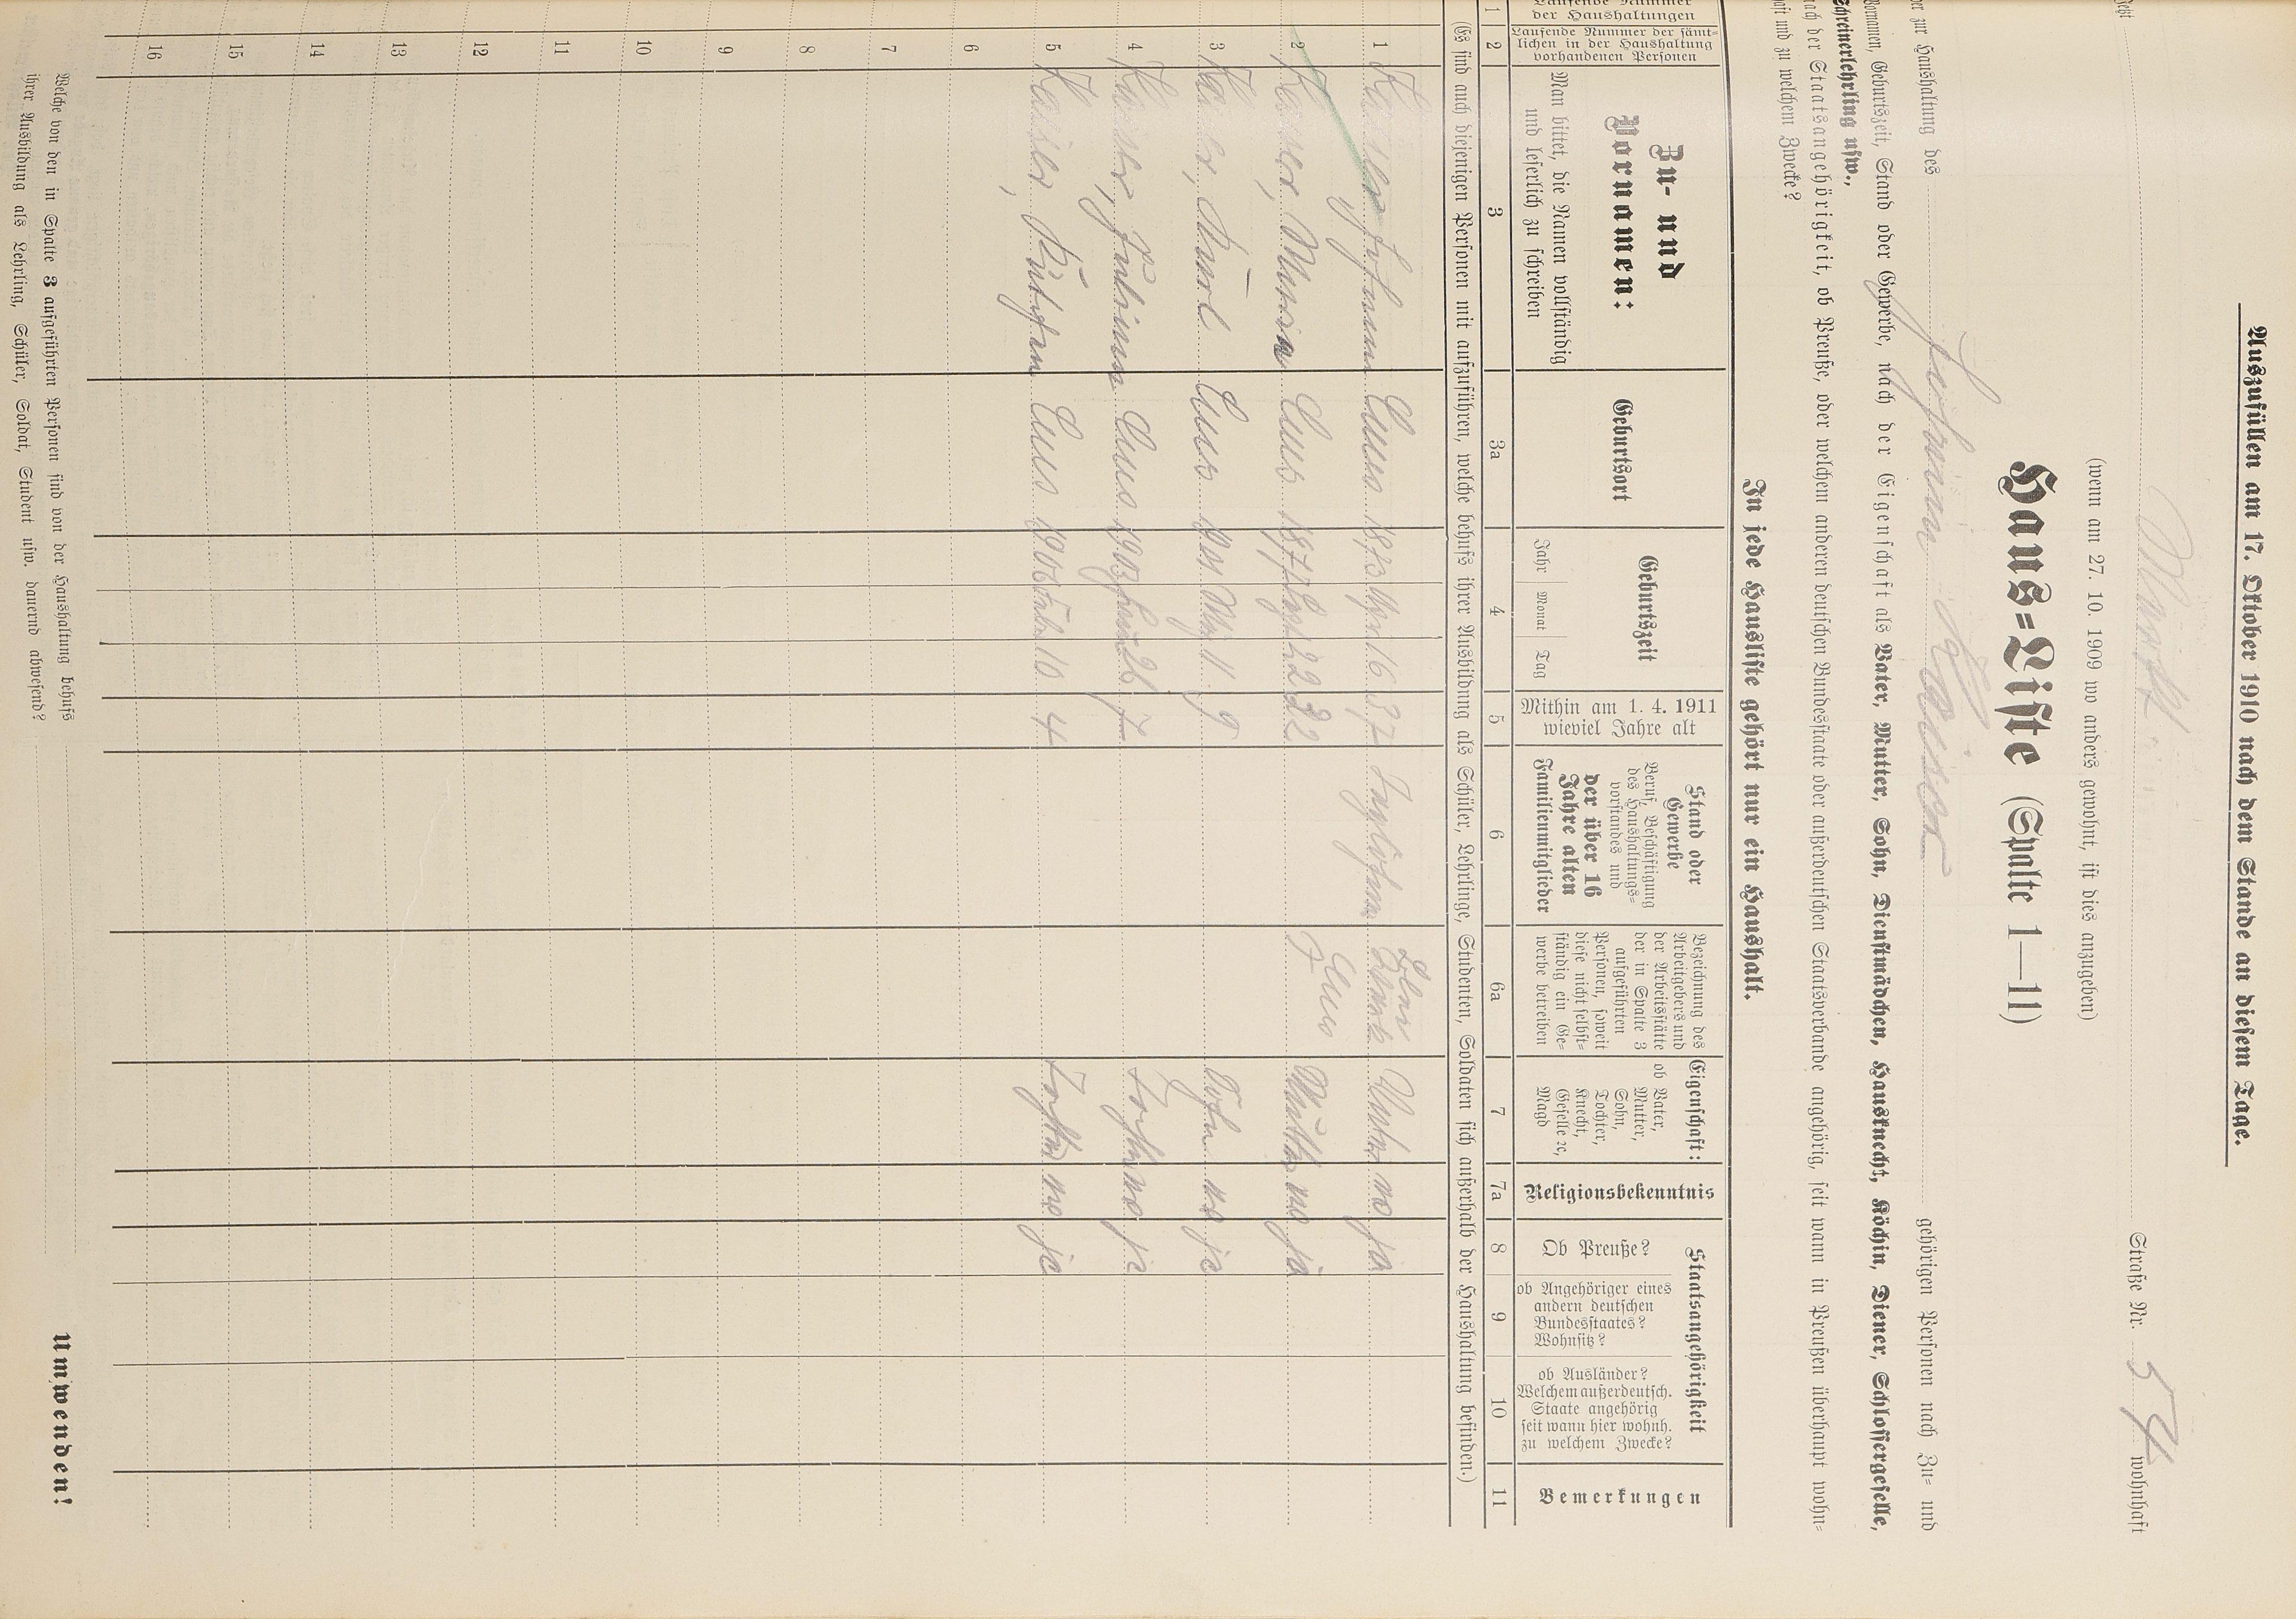 Auszufüllen am 17. Oktober 1910 nach dem Stande an diesem Tage.
jetzt Markt Straße Nr. 54 wohnhaft
(wenn am 27. 10. 1909 wo anders gewohnt, ist dies anzugeben)
Haus=Liste (Spalte 1—11)
der zur Haushaltung des Johann Kaiser gehörigen Personen nach Zu= und
Vornamen, Geburtszeit, Stand oder Gewerbe, nach der Eigenschaft als Vater, Mutter, Sohn, Dienstmädchen, Hausknecht, Köchin, Diener, Schlossergeselle,
Schreinerlehrling usw.,
nach der Staatsangehörigkeit, ob Preuße, oder welchem anderen deutschen Bundesstaate oder außerdeutschen Staatsverbande angehörig, seit wann in Preußen überhaupt wohn=
haft und zu welchem Zwecke?
In jede Hausliste gehört nur ein Haushalt.
Laufende Nummer der Haushaltungen
Laufende Nummer der sämt=
lichen in der Haushaltung
vorhandenen Personen
Zu- und
Vornamen:
Man bittet, die Namen vollständig
und leserlich zu schreiben
Geburtsort
Geburtszeit
Jahr Monat Tag
Mithin am 1. 4. 1911
wieviel Jahre alt
Stand oder
Gewerbe
Beruf, Beschäftigung
des Haushaltungs=
vorstandes und
der über 16
Jahre alten
Familienmitglieder
Bezeichnung des
Arbeitgebers und
der Arbeitsstätte
der in Spalte 3
aufgeführten
Personen, soweit
diese nicht selbst=
ständig ein Ge=
werbe betreiben
Eigenschaft:
ob Vater,
Mutter,
Sohn,
Tochter,
Knecht,
Geselle ꝛc,
Magd
Religionsbekenntnis
Staatsangehörigkeit
Ob Preuße?
ob Angehöriger eines
andern deutschen
Bundesstaates?
Wohnsitz?
ob Ausländer?
Welchem außerdeutsch.
Staate angehörig
seit wann hier wohnh.
zu welchem Zwecke?
Bemerkungen
1 2 3 3a 4 5 6 6a 7 7a 8 9 10 11
(Es sind auch diejenigen Personen mit aufzuführen, welche behufs ihrer Ausbildung als Schüler, Lehrlinge, Studenten, Soldaten sich außerhalb der Haushaltung befinden.)
1 Kaiser Johann Cues 1873 16 37 Taglöhner Vater ja
2 Kaiser, Maria Cues 22 32 Cues Mutter ja
3 Kaiser, Karl Cues 1901 11 9 Sohn ja
4 Kaiser, Juliana Cues 1903 26 7 Tochter ja
5 Kaiser, Cues 1906 10 4 Tochter ja
6
7
8
9
10
11
12
13
14
15
16
Welche von den in Spalte 3 aufgeführten Personen sind von der Haushaltung behufs
ihrer Ausbildung als Lehrling, Schüler, Soldat, Student usw. dauernd abwesend?
Umwenden!